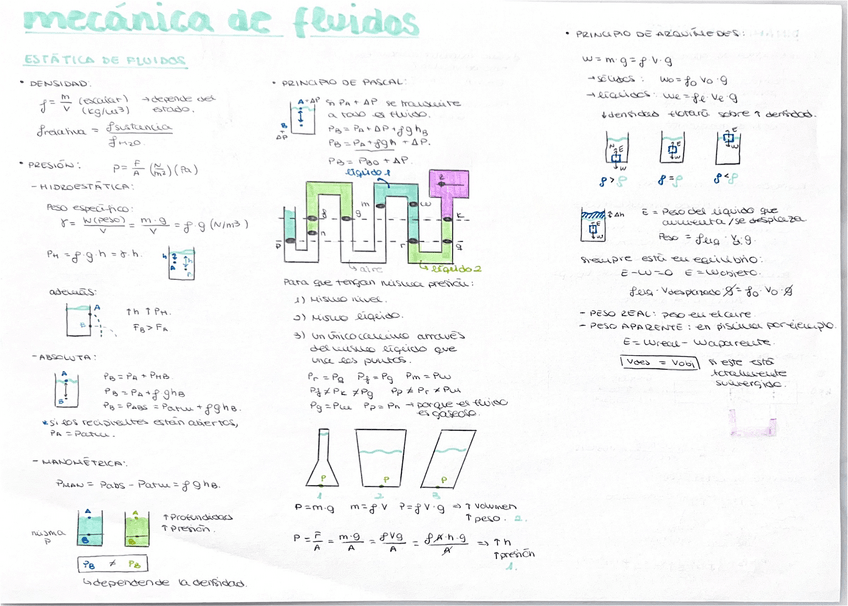 mecánica de fluidos
ESTÁTICA DE FLUIDOS
• DENSIDAD:
ρ = m/V (escalar) (kg/m³) → depende del estado.
ρrelativa = ρsustancia / ρH₂O
• PRESIÓN: P = F/A (N/m²) (Pa)
- HIDROESTÁTICA:
Peso específico:
γ = W(peso)/V = m·g/V = ρ·g (N/m³)
PH = ρ·g·h = γ·h.
h
además:
A
B
↑h ↑PH.
FB > FA
- ABSOLUTA:
A
B
PB = PA + PHB
PB = PA + ρghB
PB = PABS = Patm + ρghB.
* si los recipientes están abiertos,
PA = Patm.
- MANOMÉTRICA:
PMAN = Pabs - Patm = ρghB.
A A
B B
misma P
↑ Profundidad
↑ Presión.
PB ≠ PB
↳ dependende la densidad.
• PRINCIPIO DE PASCAL:
A=ΔP
B
+ΔP
si PA + ΔP se transmite
a todo el fluido.
PB = PA + ΔP + ρghB
PB = PA + ρgh + ΔP.
PB = PB0 + ΔP.
líquido 1
m
w
z
g
k
n
p
r
q
↳ aire
↳ líquido 2
Para que tengan misma presión:
1) Mismo nivel.
2) Mismo líquido.
3) Un único camino a través
del mismo líquido que
una los puntos.
Pg = Pm Pp = Pn → porque es fluido
es gaseoso.
P P P
1 2 3
P = m·g m = ρV P = ρV·g ⇒ ↑ volumen
↑ peso. 2.
P = F/A = m·g/A = ρVg/A = ρA·h·g/A ⇒ ↑h
↑ presión
1.
• PRINCIPIO DE ARQUÍMEDES:
W = m·g = ρ·V·g
→ sólidos: Wo = ρo Vo·g
→ líquidos: We = ρe Ve·g
↓ densidad flotará sobre ↑ densidad.
N E
W
E
W
E
W
ρ > ρ ρ = ρ ρ < ρ
↑ Δh
E
W
E = Peso del líquido que
aumenta / se desplaza
Peso = ρliq·V·g.
siempre está en equilibrio:
E - W = 0 E = Wobjeto.
ρliq·Vdesplazado·g = ρo·Vo·g
- PESO REAL: peso en el aire.
- PESO APARENTE: en piscina por ejemplo.
E = Wreal - Waparente.
Vdes = Vobj si este está
totalmente
sumergido.